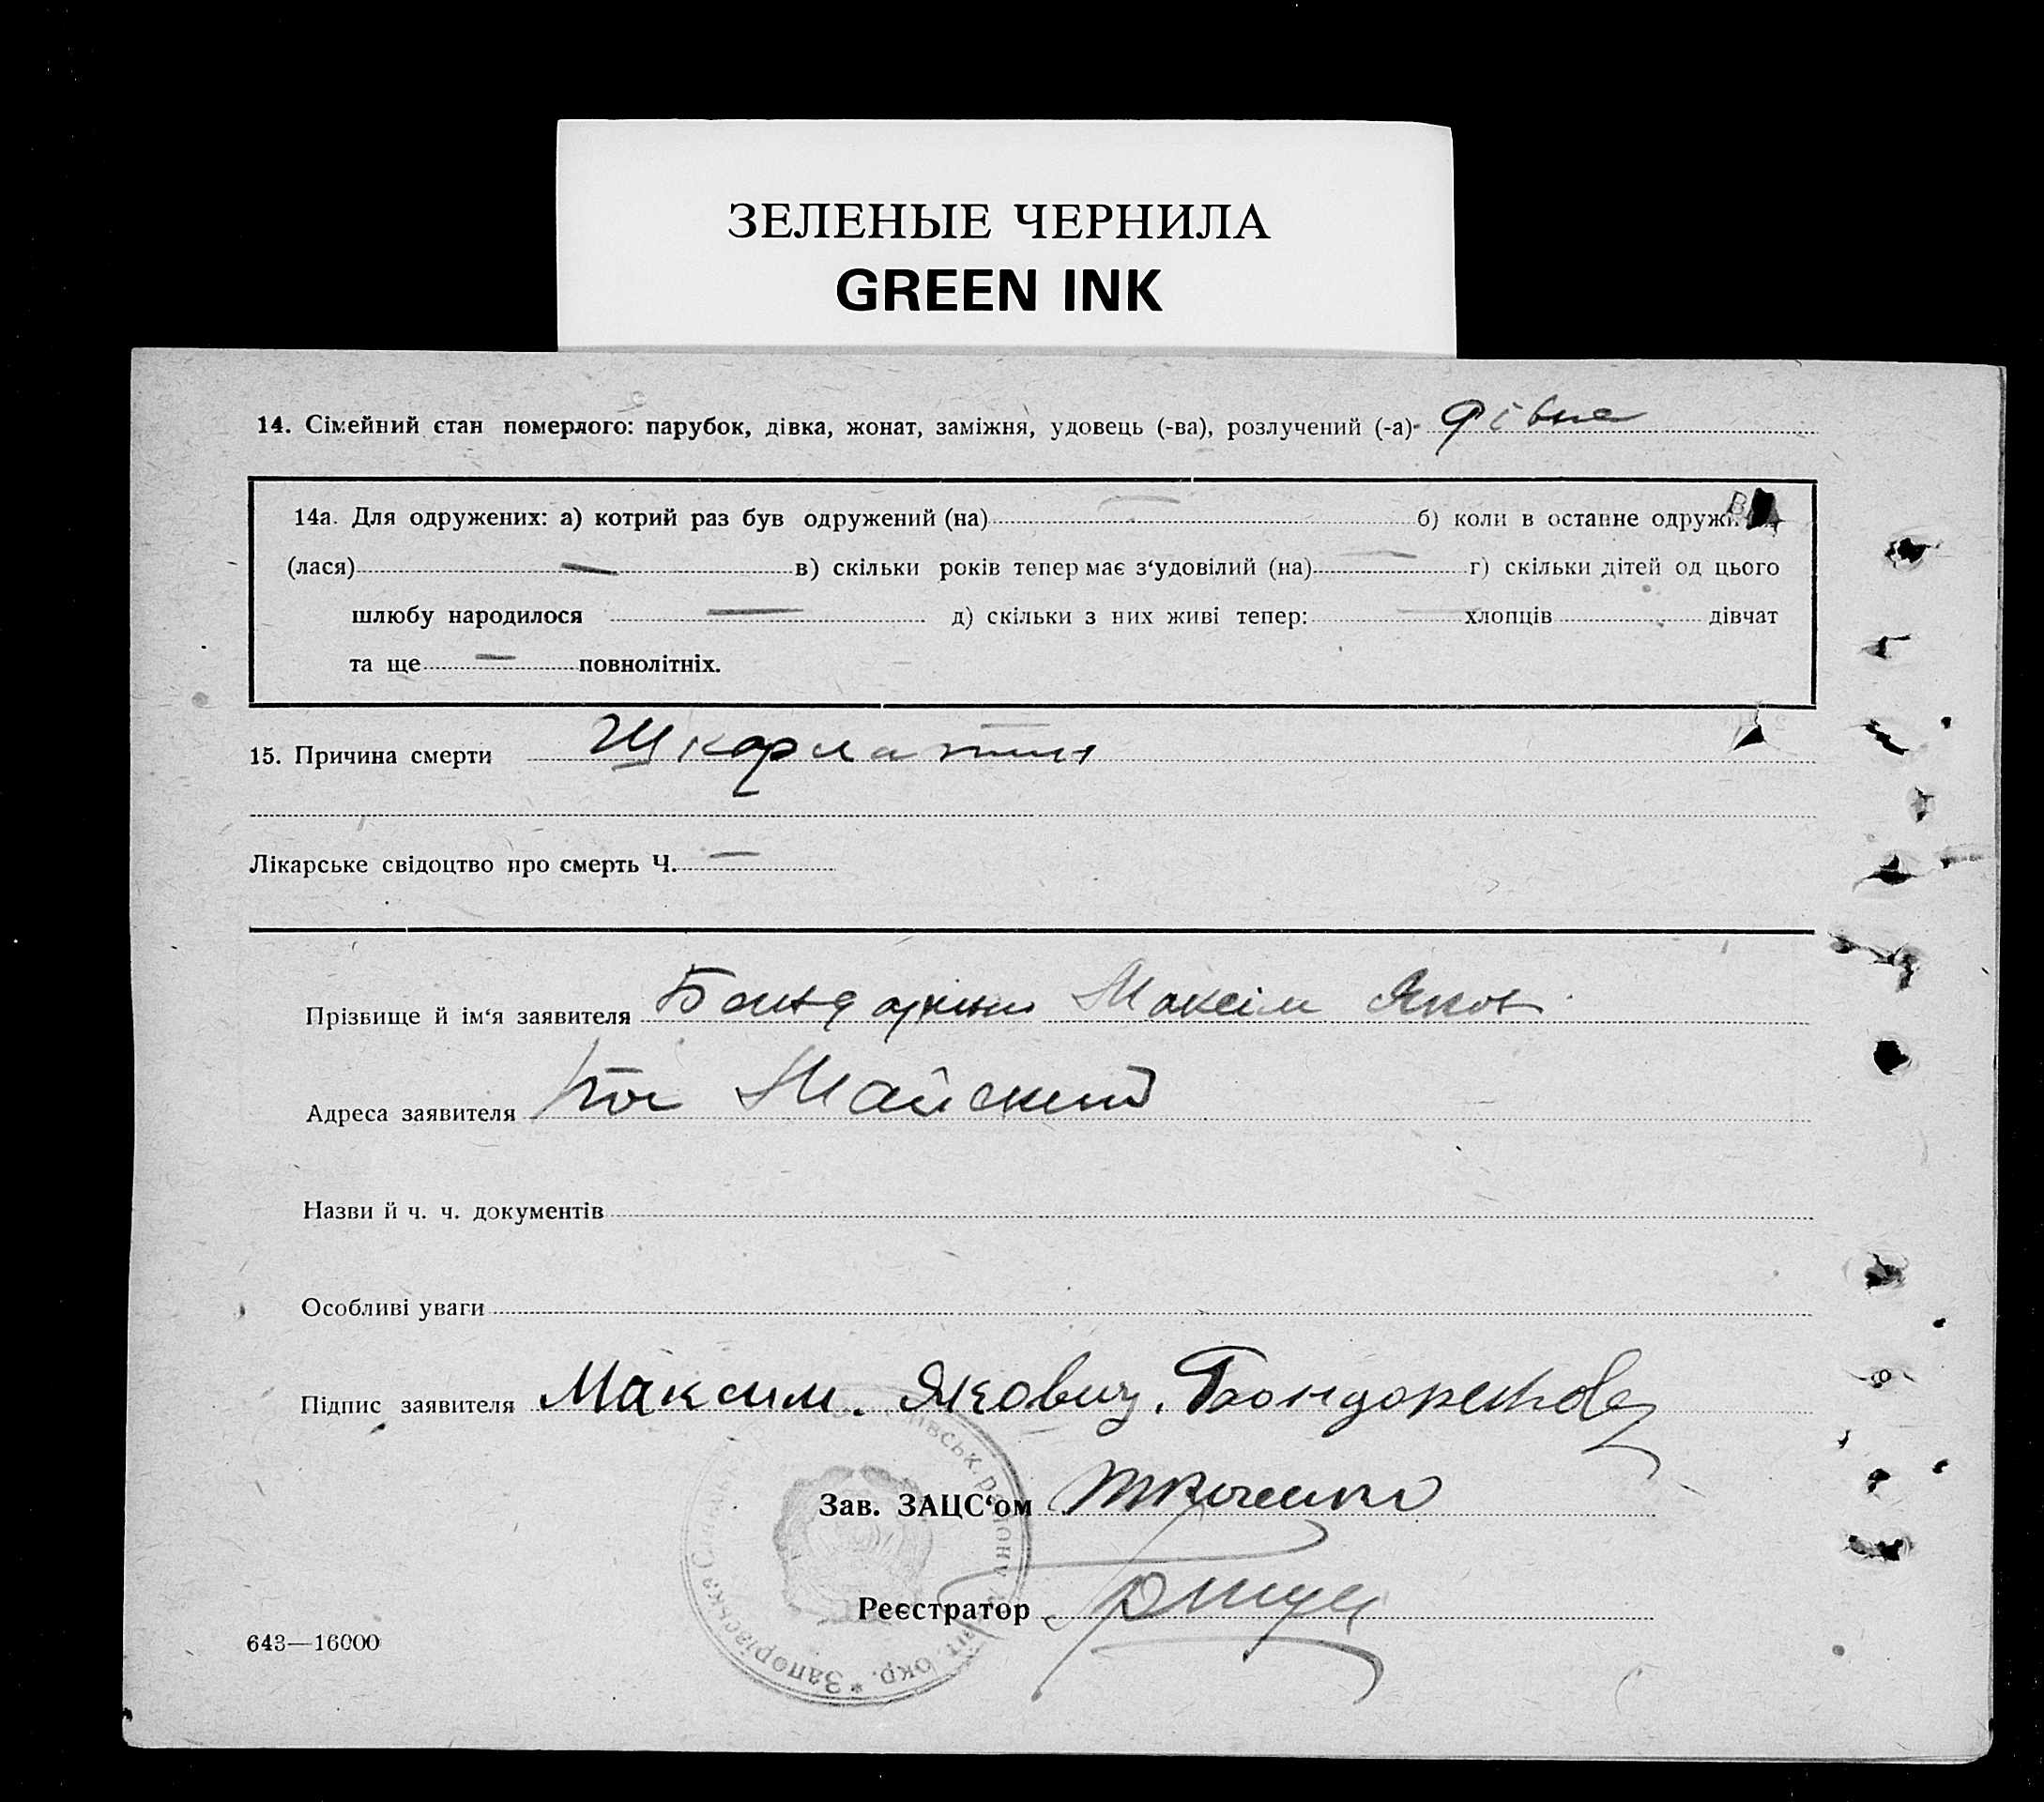 ЗЕЛЕНЫЕ ЧЕРНИЛА
GREEN INK
14. Сімейний стан померлого: парубок, дівка, жонат, заміжня, удовець (-ва), розлучений (-а)
14а. Для одружених: а) котрий раз був одружений (на) б) коли в останне
(лася) в) скільки років тепер має з‘удовілий (на) г) скільки дітей од цього
шлюбу народилося — д) скільки з них живі тепер: хлопців дівчат
та ще — повнолітніх.
15. Причина смерти Шкарлатин
Лікарське свідоцтво про смерть Ч. —
Прізвище й ім‘я заявителя Максім Яков
Адреса заявителя Майский
Назви й ч. ч. документів
Особливі уваги
Підпис заявителя Максим. Якович.
Зав. ЗАЦС‘ом Ткаченко
Реєстратор
643—16000